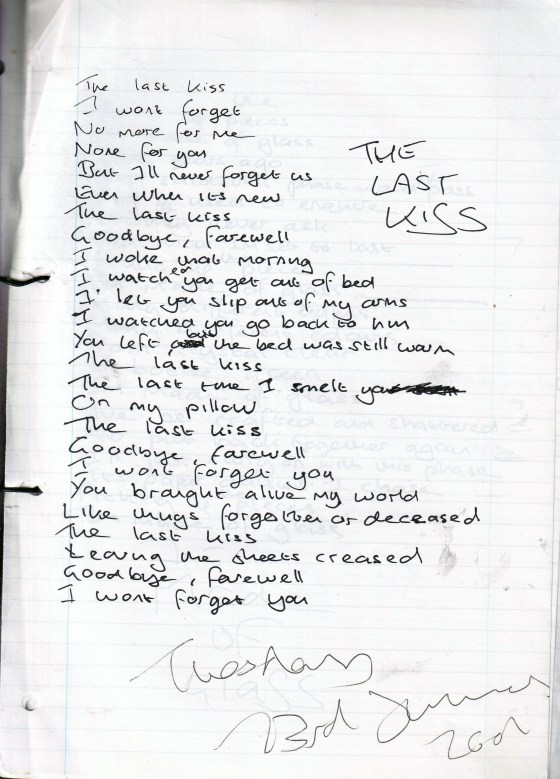 The last kiss
I wont forget
No more for me
None for you
But I'll never forget us
Even when its new
The last kiss
Goodbye, farewell
I woke that morning
I watched you get out of bed
I let you slip out of my arms
I watched you go back to him
You left, but the bed was still warm
The last kiss
The last time I smelt you
On my pillow
The last kiss
Goodbye, farewell
I wont forget you
You brought alive my world
Like things forgotten or deceased
The last kiss
Leaving the sheets creased
Goodbye, farewell
I wont forget you
THE
LAST
KISS
23rd